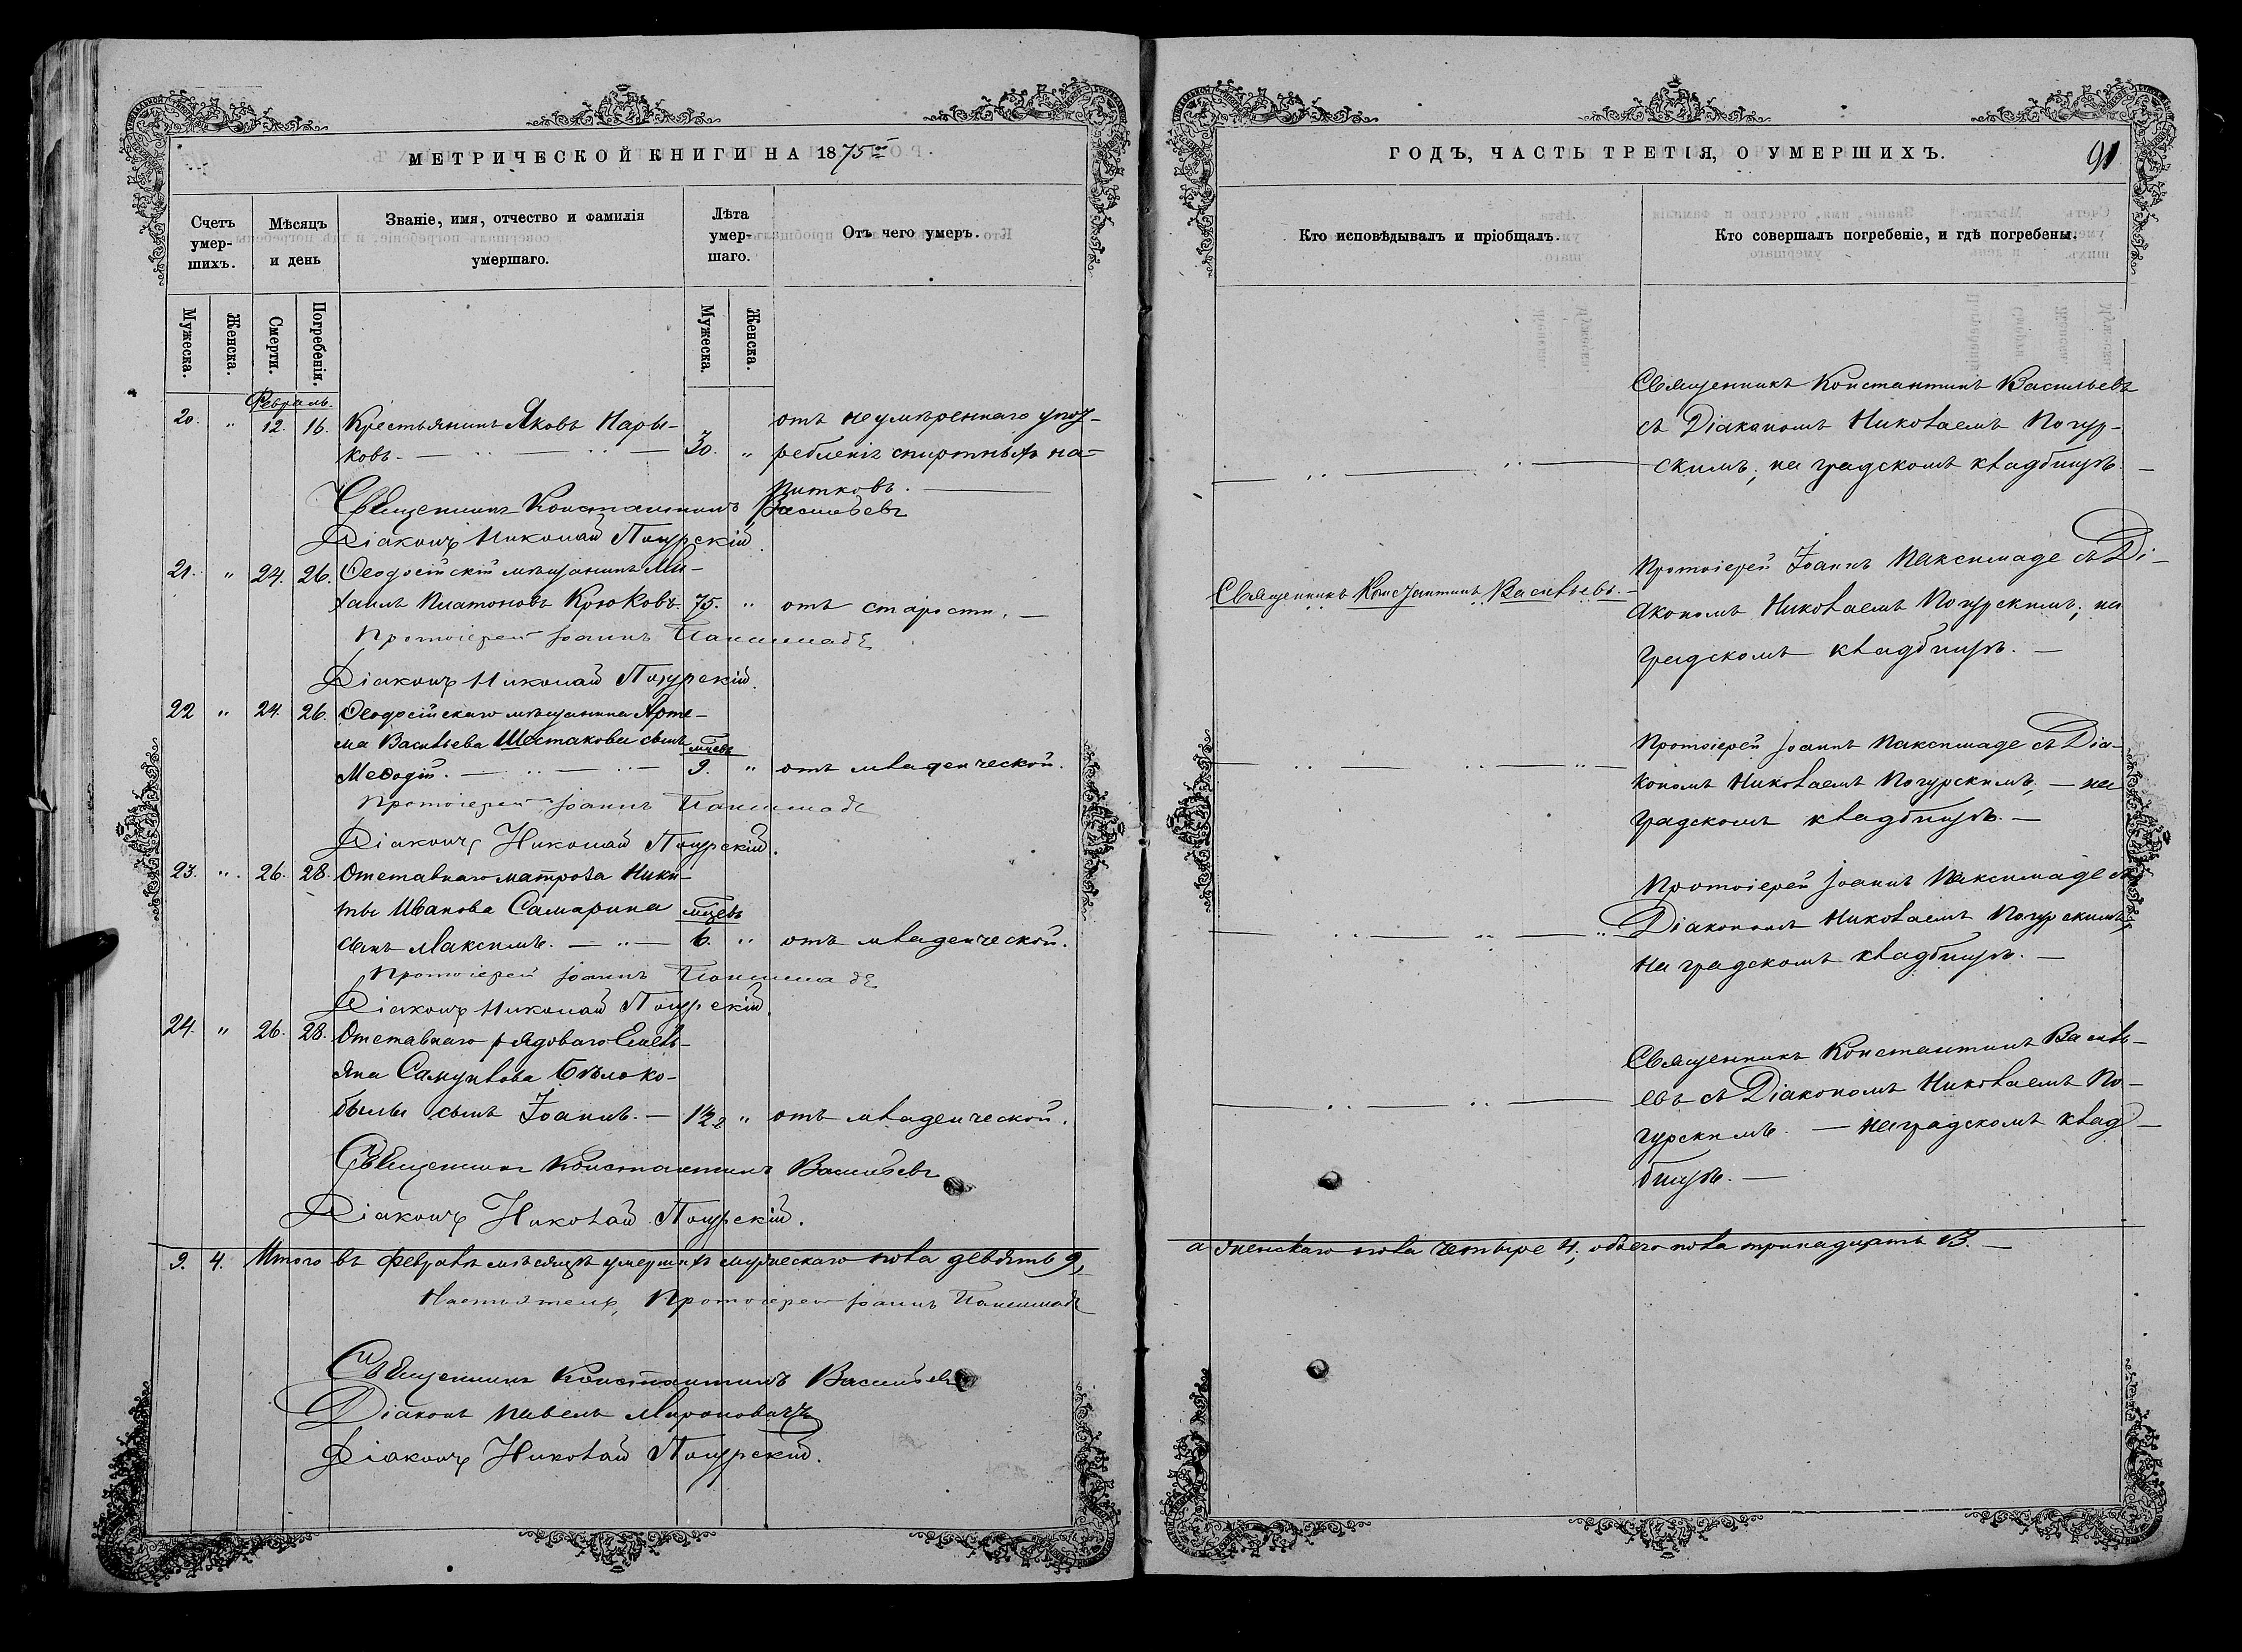 МЕТРИЧЕСКОЙ КНИГИ НА 1875
Счетъ умер-шихъ.
Мѣсяцъ и день
Званіе, имя, отчество и фамилія умершаго.
Лѣта умер-шаго.
Отъ чего умеръ.
Мужеска.
Женска.
Смерти.
Погребенія.
Мужеска.
Женска.
Февраль.
20. " 12. 16. Крестьянинъ Яковъ Нары-
отъ неумѣреннаго упот-
ковъ. 30. " ребленія спиртныхъ на-
питковъ.
Священникъ Константинъ Васильевъ
Діаконъ Николай Погурскій
21. " 24. 26. Ѳеодосійскій мѣщанинъ Ми-
хаилъ Платоновъ Крюковъ. 75. " отъ старости.
Протоіерей Іоаннъ
Діаконъ Николай Погурскій.
22 " 24. 26. Ѳеодосійскаго мѣщанина Арте-
ма Васильева Шестакова сынъ мцевъ
Меѳодій. 9. " отъ младенческой.
Протоіерей Іоаннъ
Діаконъ Николай Погурскій.
23. " 26. 28. Отставнаго матроза Ники-
ты Иванова Самарина мцевъ
сынъ Максимъ. 6. " отъ младенческой.
Протоіерей Іоаннъ
Діаконъ Николай Погурскій
24. " 26. 28. Отставнаго рядоваго Емель-
яна Самуилова Бѣлоко-
былы сынъ Іоаннъ. 1½ " отъ младенческой.
Священникъ Константинъ Васильевъ
Діаконъ Николай Погурскій.
9. 4. Итого въ февралѣ мѣсяцѣ умершихъ мужескаго пола девять 9,
Настоятель, Протоіерей Іоаннъ
Священникъ Константинъ Васильевъ
Діаконъ Павелъ Мироновичъ
Діаконъ Николай Погурскій.
ГОДЪ, ЧАСТЬ ТРЕТІЯ, О УМЕРШИХЪ.
91
Кто исповѣдывалъ и пріобщалъ.
Кто совершалъ погребеніе, и гдѣ погребены.
Священникъ Константинъ Васильевъ
съ Діакономъ Николаемъ Погур-
скимъ, на градскомъ кладбищѣ.
Протоіерей Іоаннъ Паксимаде съ Ді-
Священникъ Константинъ Васильевъ.
акономъ Николаемъ Погурскимъ; на
градскомъ кладбищѣ.
Протоіерей Іоаннъ Паксимаде съ Діа-
кономъ Николаемъ Погурскимъ, на
градскомъ кладбищѣ.
Протоіерей Іоаннъ Паксимаде съ
Діакономъ Николаемъ Погурскимъ,
на градскомъ кладбищѣ.
Священникъ Константинъ Василь-
евъ съ Діакономъ Николаемъ По-
гурскимъ. на градскомъ клад-
бищѣ.
а женскаго пола четыре 4, обоего пола тринадцать 13.